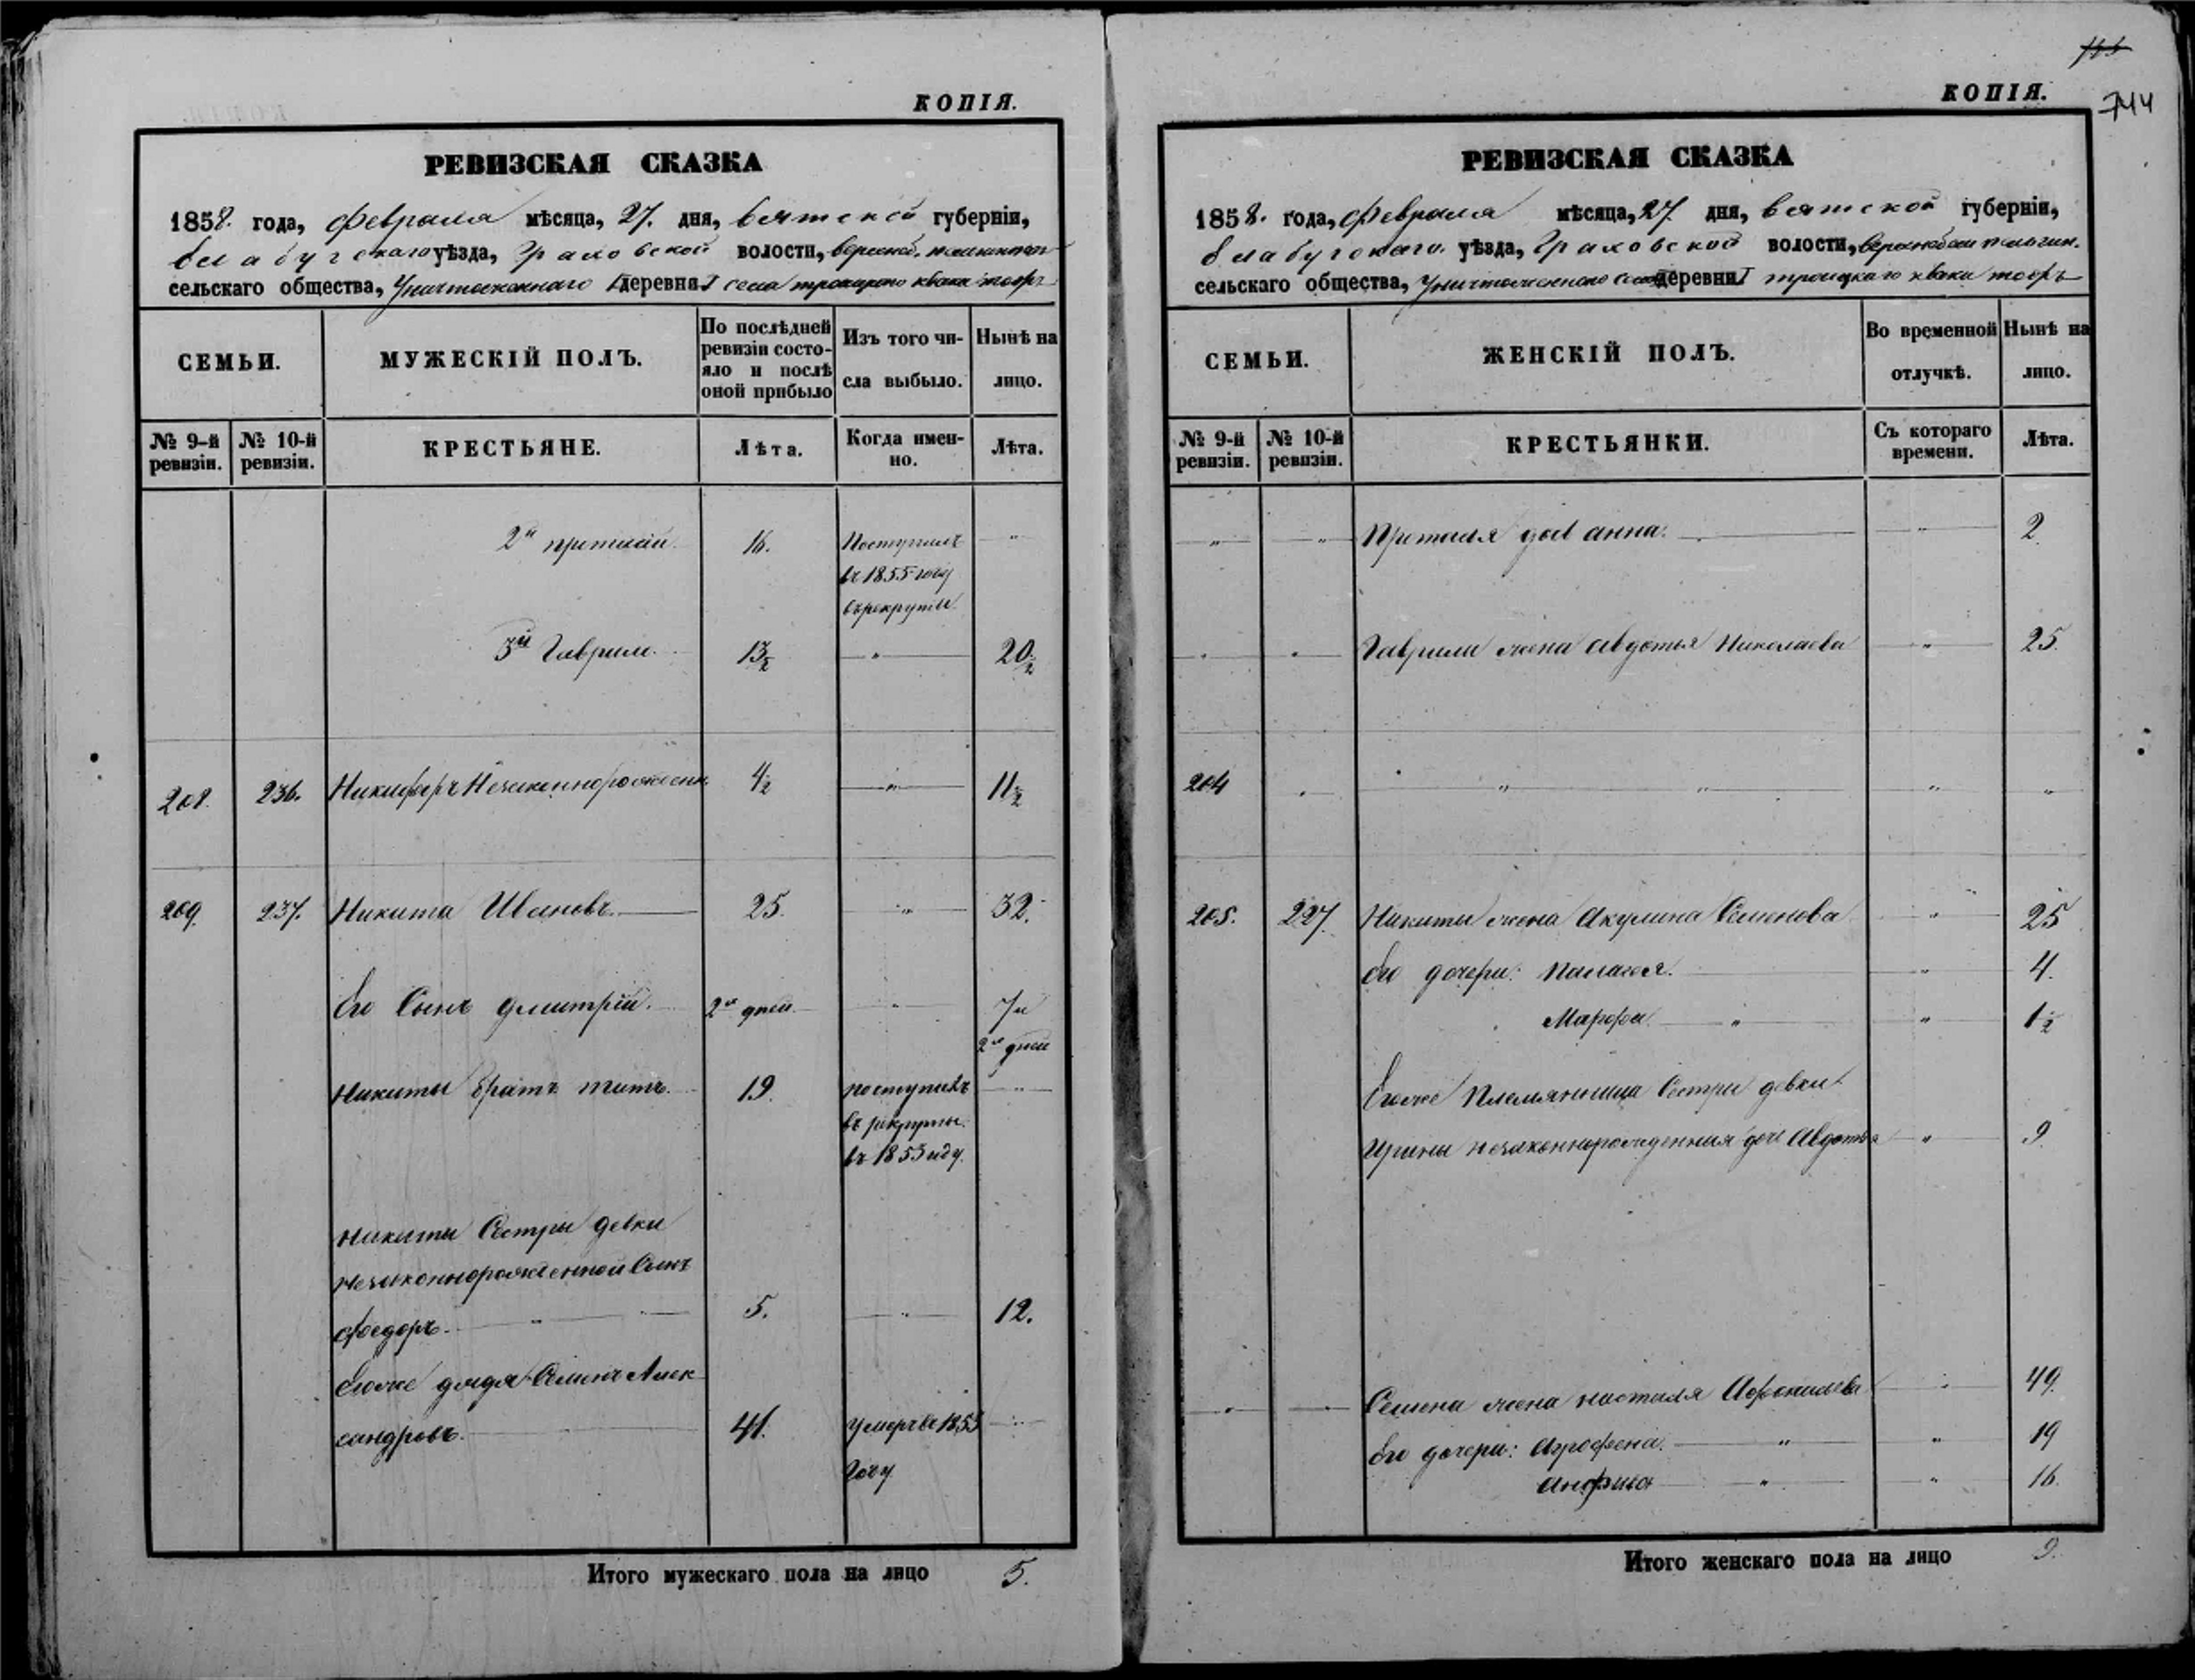 КОПІЯ.
РЕВИЗСКАЯ СКАЗКА
1858. года, февраля мѣсяца, 27. дня, вятской губерніи,
елабугскаго уѣзда, Граховской волости,
сельскаго общества, Уничтоженнаго деревни села троицкаго
СЕМЬИ.
МУЖЕСКІЙ ПОЛЪ.
По послѣдней
ревизіи состо-
яло и послѣ
оной прибыло
Изъ того чи-
сла выбыло.
Нынѣ на
лицо.
№ 9-й
ревизіи.
№ 10-й
ревизіи.
КРЕСТЬЯНЕ.
Лѣта.
Когда имен-
но.
Лѣта.
2й 16. Поступилъ "
въ 1855 году
въ рекруты.
3й Гаврила 13½ " 20½
208. 236. Никифоръ Незаконнорожден. 4½ " 11½
209. 237. Никита Ивановъ. 25. " 32.
Его Сынъ Дмитрій. 2х дней " 7 и
2х дней
Никиты братъ титъ. 19. поступилъ "
въ рекруты
въ 1853 году.
Никиты Сестры девки
незаконнорожденной Сынъ
Федоръ. " 5. " 12.
Егоже дядя Семенъ Алек
сандровъ. 41. умеръ въ 1855 "
году
Итого мужескаго пола на лицо 5.
744
КОПІЯ.
РЕВИЗСКАЯ СКАЗКА
1858. года, февраля мѣсяца, 27 дня, вятской губерніи,
елабугскаго уѣзда, Граховской волости,
сельскаго общества, Уничтоженнаго деревни троицкаго
СЕМЬИ.
ЖЕНСКІЙ ПОЛЪ.
Во временной
отлучкѣ.
Нынѣ на
лицо.
№ 9-й
ревизіи.
№ 10-й
ревизіи.
КРЕСТЬЯНКИ.
Съ котораго
времени.
Лѣта.
" " анна. " 2
" " Гаврилы жена авдотья Николаева " 25.
204 " " " " "
205. 227. Никиты жена Акулина Семенова " 25
Его дочери: Палагея. " 4.
Марфа. " " 1½
Егоже Племянница Сестры девки
Ирины незаконнорожденная дочь Авдотья " 9.
" Семена жена Афонасьева " 49.
Его дочери: Агрофена. " " 19
Анфиса " " 16.
Итого женскаго пола на лицо 9.